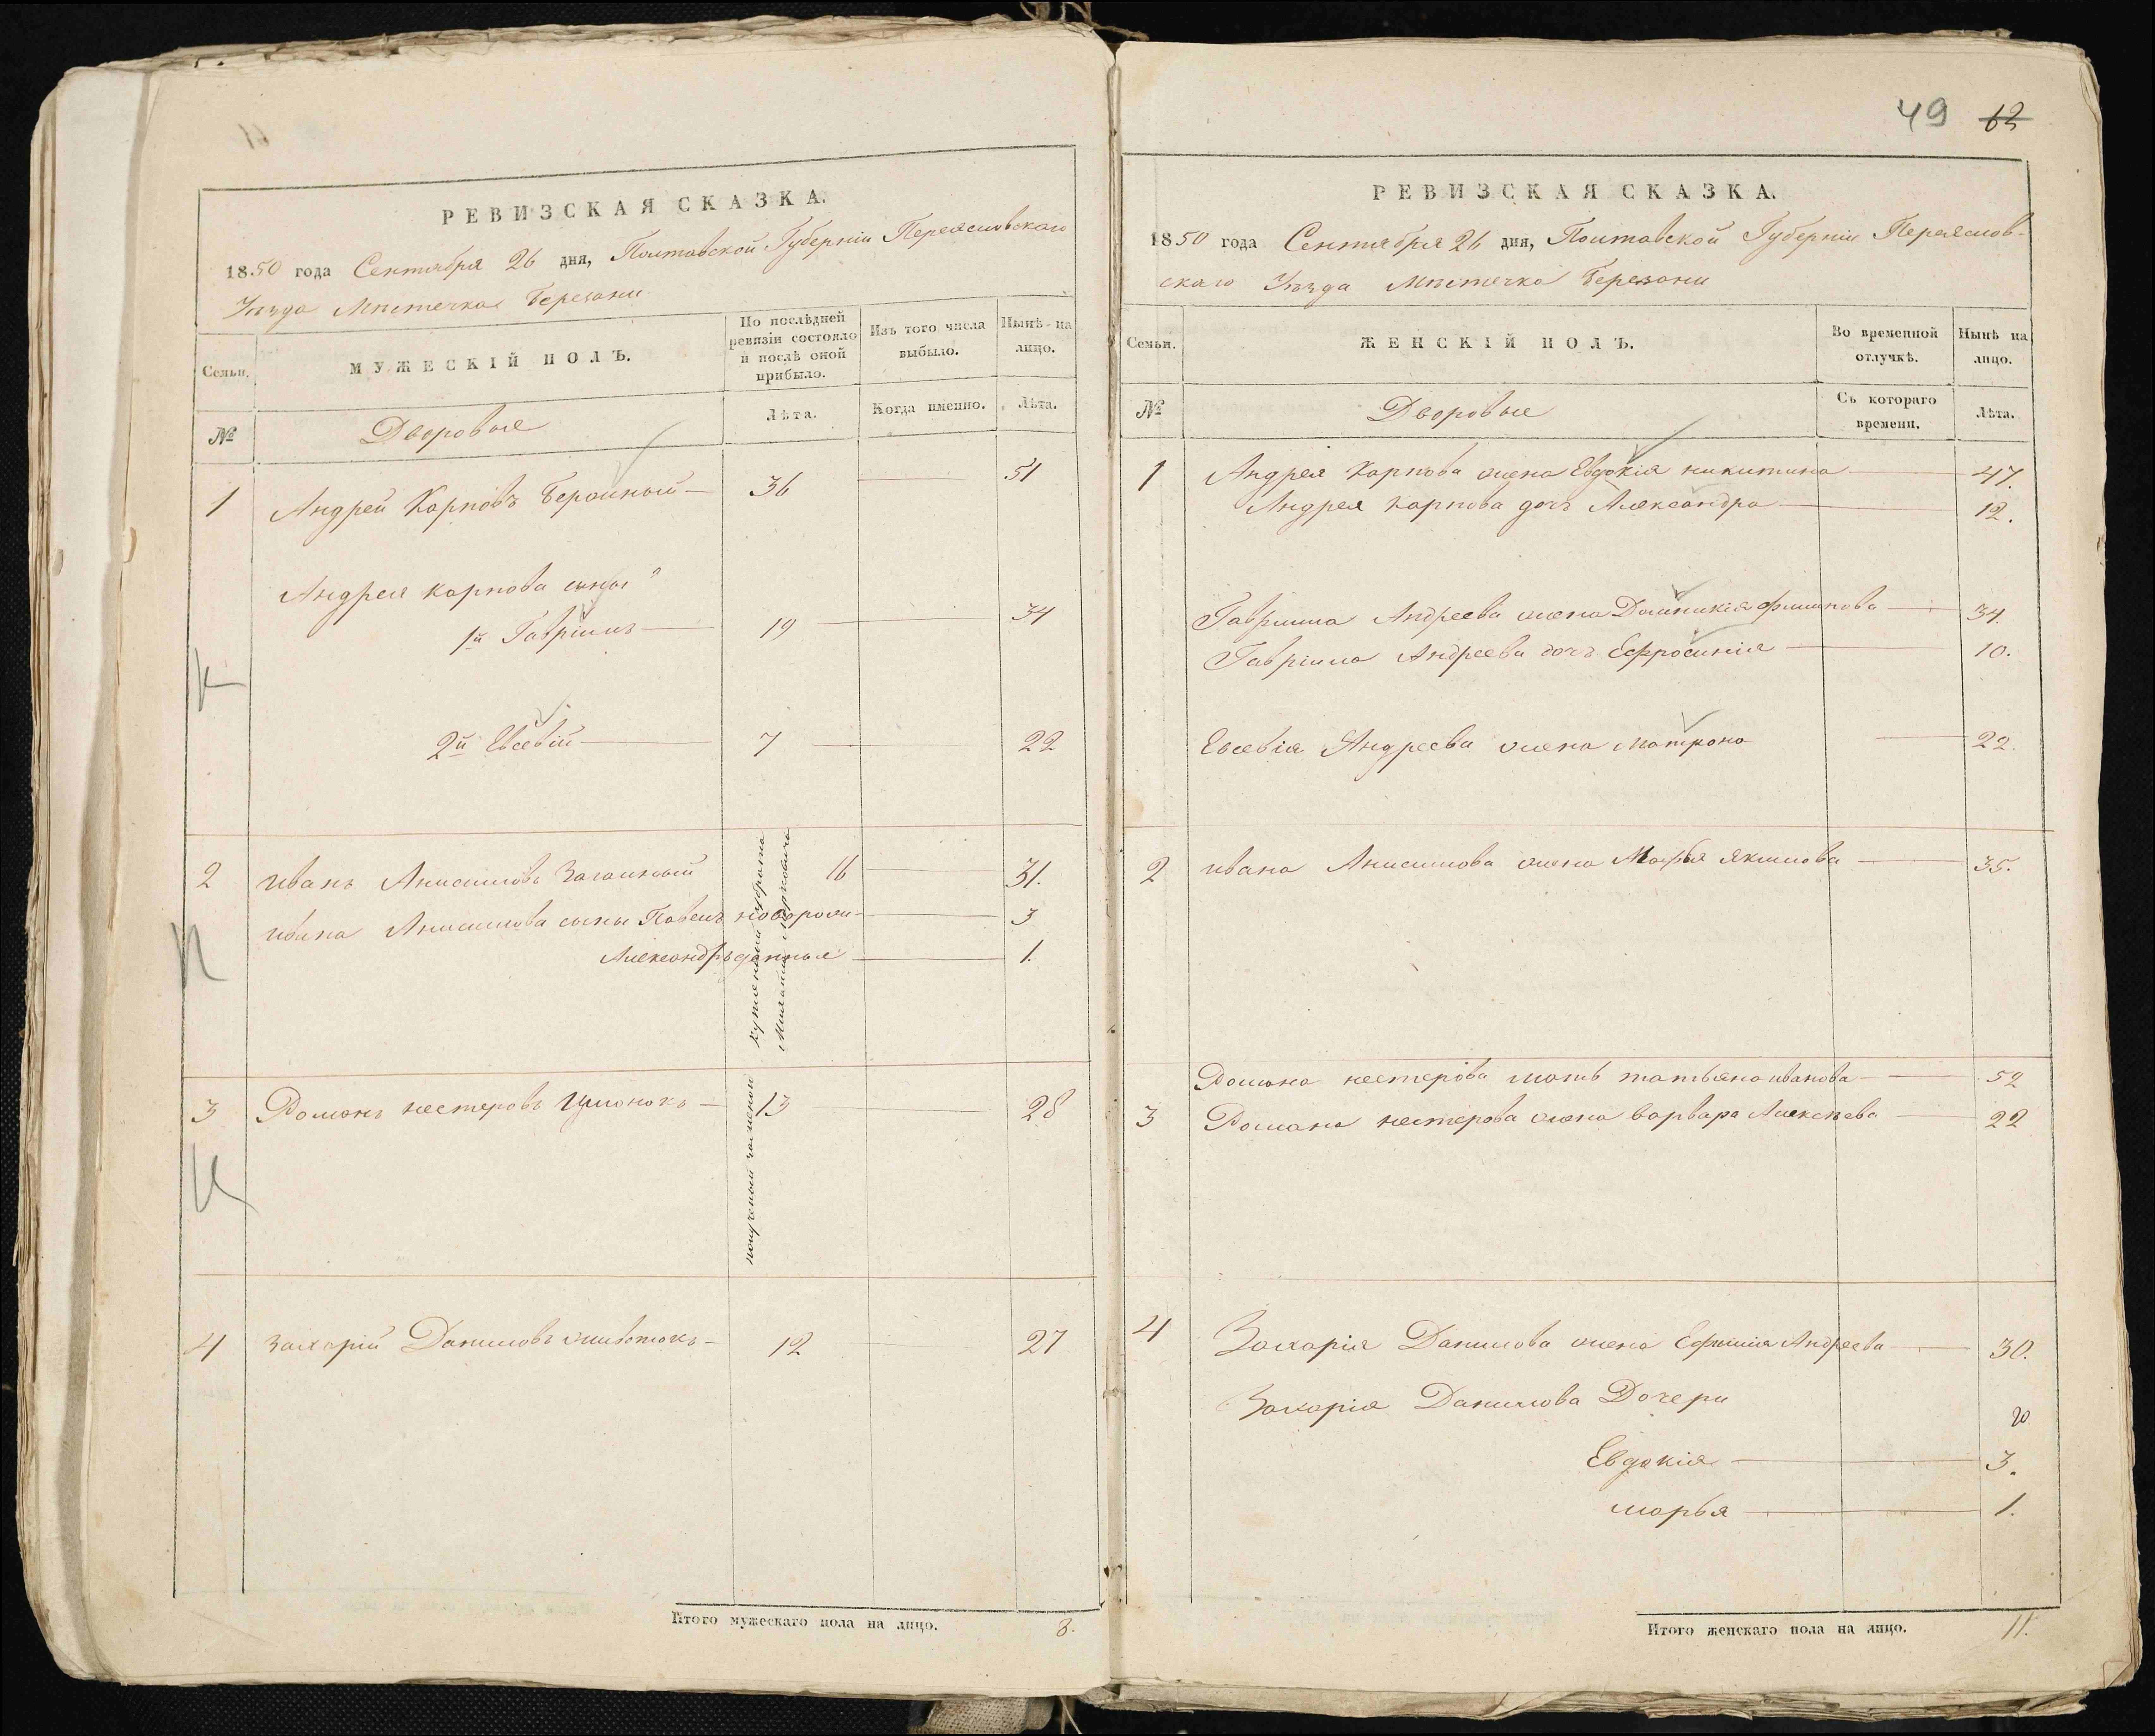 РЕВИЗСКАЯ СКАЗКА.
1850 года Сентября 26 дня, Полтавской Губерніи Переяславскаго
Уѣзда Мѣстечка Березани
Семьи.
МУЖЕСКІЙ ПОЛЪ.
По послѣдней ревизіи состояло и послѣ оной прибыло.
Изъ того числа выбыло.
Нынѣ на лицо.
№
Дворовые
Лѣта.
Когда именно.
Лѣта.
1 Андрей Карповъ 36 51
Андрея Карпова сыны
1й Гавріилъ 19 34
2й Евсевій 7 22
2 Иванъ Анисимовъ 16 31.
Ивана Анисимова сыны Павелъ новорож- 3
Александръ денные 1.
3 Романъ Нестеровъ 13 28
4 Захарій Даниловъ 12 27
Итого мужескаго пола на лицо. 8.
49 62
РЕВИЗСКАЯ СКАЗКА.
1850 года Сентября 26 дня, Полтавской Губерніи Переяслав-
скаго Уѣзда Мѣстечка Березани
Семьи.
ЖЕНСКІЙ ПОЛЪ.
Во временной отлучкѣ.
Нынѣ на лицо.
№
Дворовые
Съ котораго времени.
Лѣта.
1 Андрея Карпова жена Евдокія Никитина 47.
Андрея Карпова дочъ Александра 12.
Гавріила Андреева жена Домникія Филипова 34.
Гавріила Андреева дочъ Ефросинія 10.
Евсевія Андреева жена Матрона 22.
2 Ивана Анисимова жена Марья Якимова 35.
Романа Нестерова мать Татьяна Иванова 52
3 Романа Нестерова жена Варвара Алексѣева 22
4 Захарія Данилова жена Ефимія Андреева 30.
Захарія Данилова Дочери
Евдокія 3.
Марья 1.
Итого женскаго пола на лицо. 11.